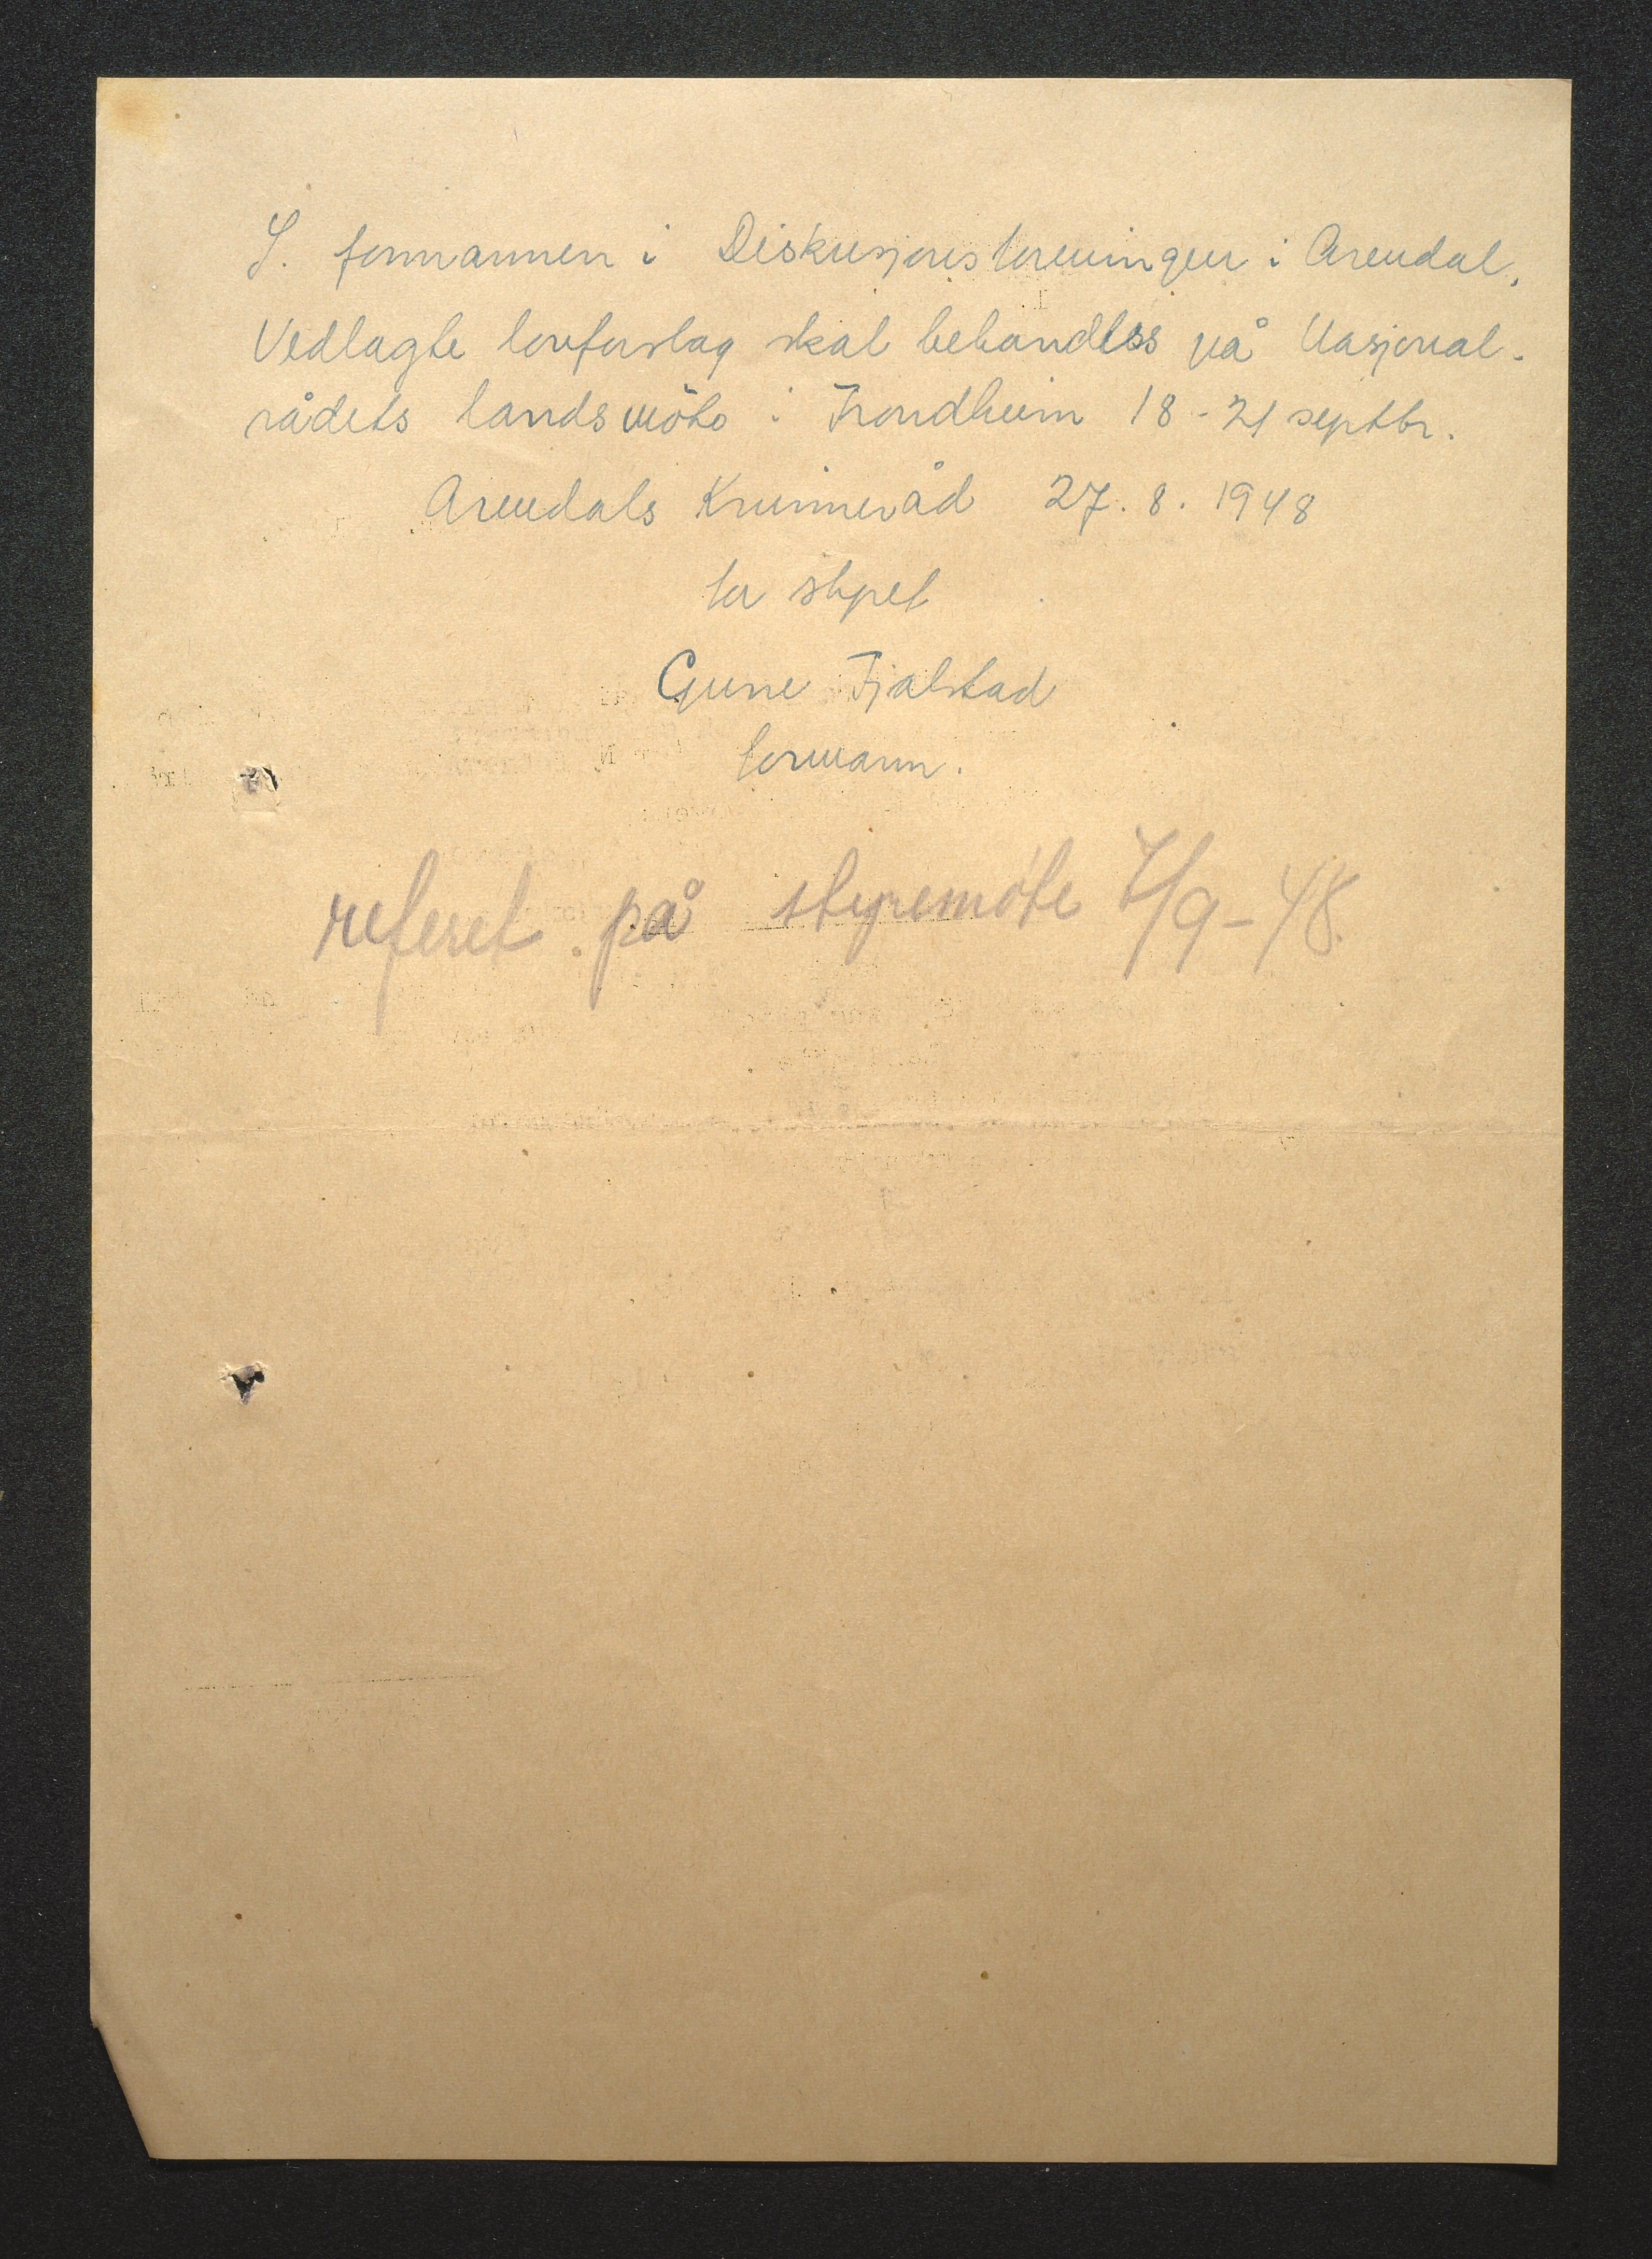 T. formannen i Diskusjonsforeningen i Arendal.
Vedlagte lovforslag skal behandles på Nasjonal-
rådets landsmöte i Trondheim 18-21 septbr.
Arendals Kvinneråd 27. 8. 1948
for styret
Gune Fjalstad
formann.
referet på styremöte 7/9-48.